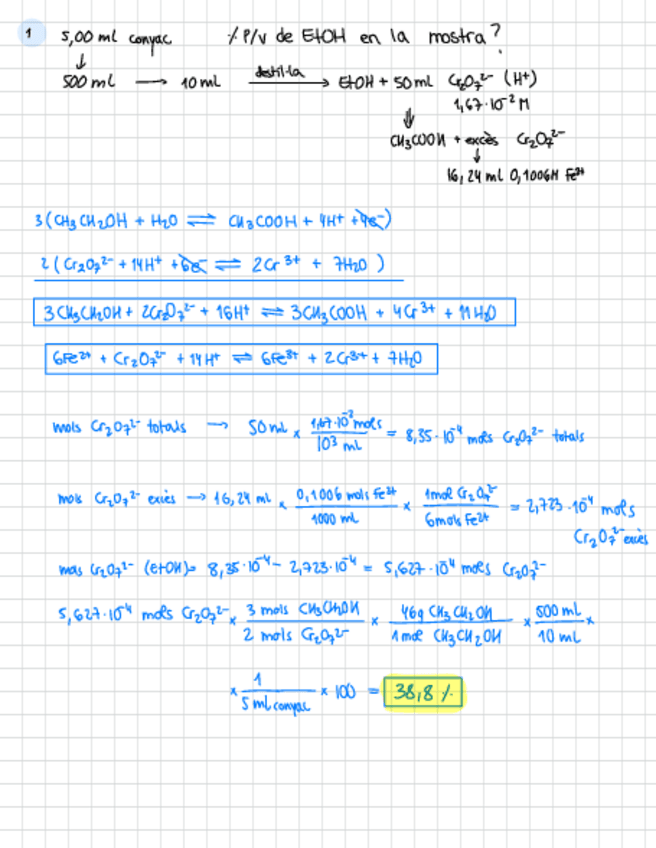 1 5,00 ml conyac % P/V de EtOH en la mostra?
↓
500 ml → 10 ml destil·la → EtOH + 50 ml Cr₂O₇²⁻ (H⁺)
1,67·10⁻² M
⇓
CH₃COOH + excés Cr₂O₇²⁻
↓
16,24 ml 0,1006M Fe²⁺
3 (CH₃CH₂OH + H₂O ⇌ CH₃COOH + 4H⁺ + 4e⁻)
2 (Cr₂O₇²⁻ + 14H⁺ + 6e⁻ ⇌ 2Cr³⁺ + 7H₂O)
3CH₃CH₂OH + 2Cr₂O₇²⁻ + 16H⁺ ⇌ 3CH₃COOH + 4Cr³⁺ + 11H₂O
6Fe²⁺ + Cr₂O₇²⁻ + 14H⁺ ⇌ 6Fe³⁺ + 2Cr³⁺ + 7H₂O
mols Cr₂O₇²⁻ totals → 50 ml × 1,67·10⁻² mols / 10³ ml = 8,35·10⁻⁴ mols Cr₂O₇²⁻ totals
mols Cr₂O₇²⁻ excés → 16,24 ml × 0,1006 mols Fe²⁺ / 1000 ml × 1 mol Cr₂O₇²⁻ / 6 mols Fe²⁺ = 2,723·10⁻⁴ mols
Cr₂O₇²⁻ excés
mols Cr₂O₇²⁻ (etOH) → 8,35·10⁻⁴ - 2,723·10⁻⁴ = 5,627·10⁻⁴ mols Cr₂O₇²⁻
5,627·10⁻⁴ mols Cr₂O₇²⁻ × 3 mols CH₃CH₂OH / 2 mols Cr₂O₇²⁻ × 46g CH₃CH₂OH / 1 mol CH₃CH₂OH × 500 ml / 10 ml ×
× 1 / 5 ml conyac × 100 = 38,8 %